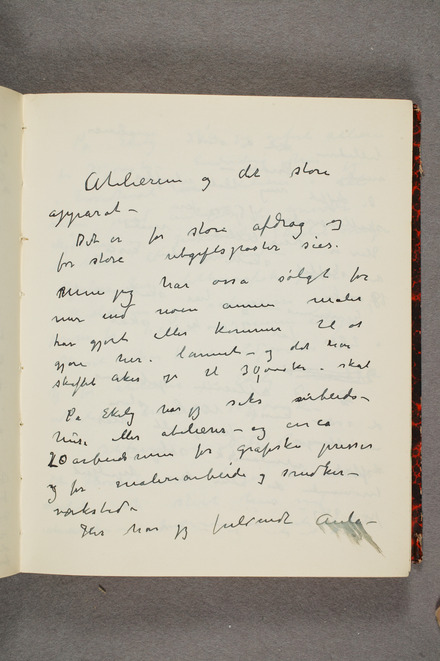 Atelierene og det store
apparat –
Det er for store afdrag og
for store utgiftsposter sies.
Men jeg har ossa solgt for
mer end noen annen maler
har gjort eller kommer til at
gjøre her i lannet – og det har
skaffet til skat
På Ekely har jeg seks arbeids–
huse eller atelierer – og circa
20 arbeidsrum for grafiske presser
og for malerarbeide og snedker–
værksteder
Her har jeg fuldendt Aula–